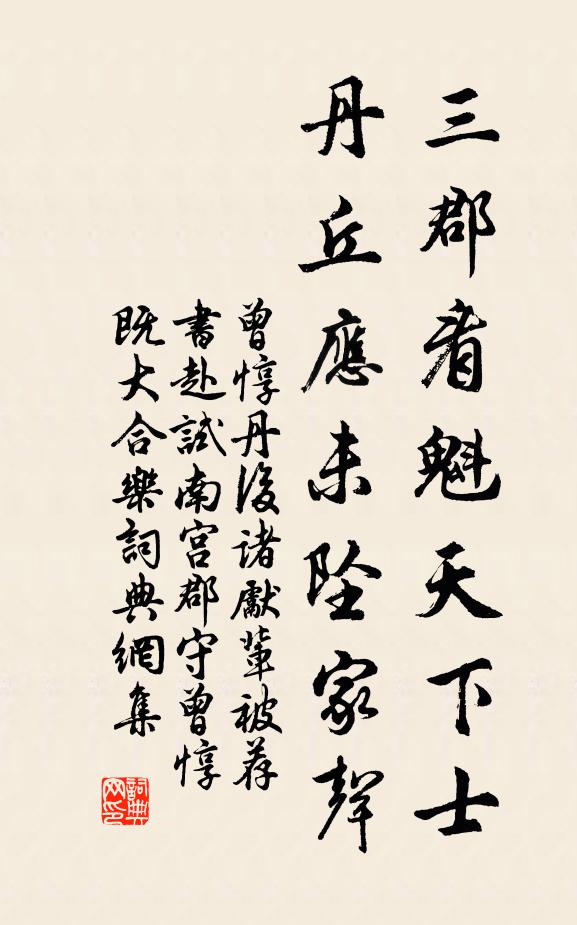 三郡看魁天下士
丹丘應未墜家聲
曾惇丹後諸獻輩被荐
書赴試南宮郡守曾惇
既大合樂詞典網集
詞典網印